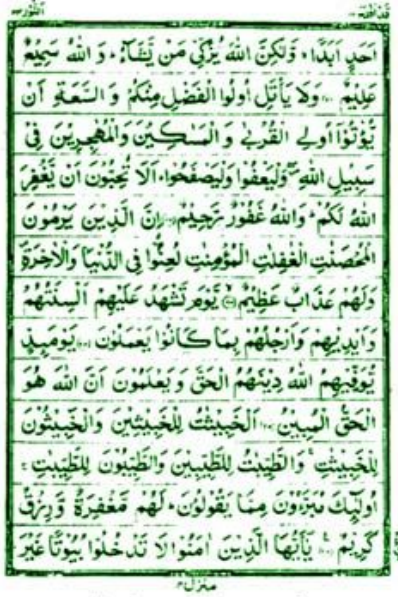 قد افلح ١٨
النور ٢٤
اَحَدٍ اَبَدًا ۙ وَّلٰكِنَّ اللّٰهَ يُزَكِّىْ مَنْ يَّشَآءُ ؕ وَ اللّٰهُ سَمِيْعٌ
عَلِيْمٌ ۞ وَلَا يَاْتَلِ اُولُوا الْفَضْلِ مِنْكُمْ وَ السَّعَةِ اَنْ
يُّؤْتُوْۤا اُولِى الْقُرْبٰى وَ الْمَسٰكِيْنَ وَالْمُهٰجِرِيْنَ فِىْ
سَبِيْلِ اللّٰهِ ۖ وَلْيَعْفُوْا وَلْيَصْفَحُوْا ؕ اَلَا تُحِبُّوْنَ اَنْ يَّغْفِرَ
اللّٰهُ لَكُمْ ؕ وَاللّٰهُ غَفُوْرٌ رَّحِيْمٌ ۞ اِنَّ الَّذِيْنَ يَرْمُوْنَ
الْمُحْصَنٰتِ الْغٰفِلٰتِ الْمُؤْمِنٰتِ لُعِنُوْا فِى الدُّنْيَا وَالْاٰخِرَةِ ۪
وَلَهُمْ عَذَابٌ عَظِيْمٌ ۞ يَّوْمَ تَشْهَدُ عَلَيْهِمْ اَلْسِنَتُهُمْ
وَاَيْدِيْهِمْ وَاَرْجُلُهُمْ بِمَا كَانُوْا يَعْمَلُوْنَ ۞ يَوْمَئِذٍ
يُّوَفِّيْهِمُ اللّٰهُ دِيْنَهُمُ الْحَقَّ وَ يَعْلَمُوْنَ اَنَّ اللّٰهَ هُوَ
الْحَقُّ الْمُبِيْنُ ۞ اَلْخَبِيْثٰتُ لِلْخَبِيْثِيْنَ وَالْخَبِيْثُوْنَ
لِلْخَبِيْثٰتِ ۚ وَالطَّيِّبٰتُ لِلطَّيِّبِيْنَ وَالطَّيِّبُوْنَ لِلطَّيِّبٰتِ ۚ
اُولٰٓئِكَ مُبَرَّءُوْنَ مِمَّا يَقُوْلُوْنَ ؕ لَهُمْ مَّغْفِرَةٌ وَّرِزْقٌ
كَرِيْمٌ ۞ يٰۤاَيُّهَا الَّذِيْنَ اٰمَنُوْا لَا تَدْخُلُوْا بُيُوْتًا غَيْرَ
منزل ٤